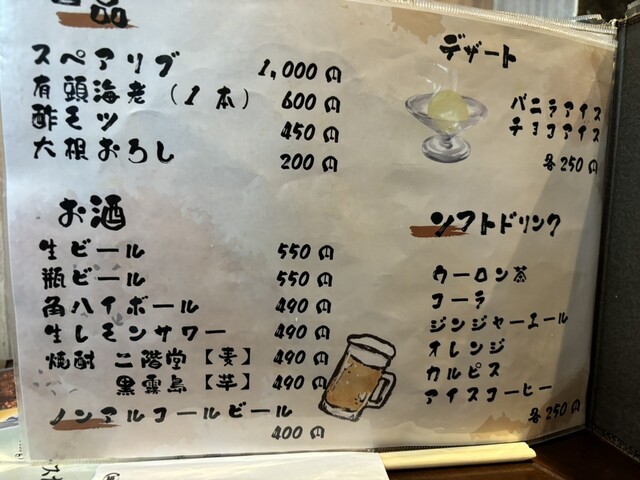 品
スペアリブ 1,000円
有頭海老(1本) 600円
酢モツ 450円
大根おろし 200円
お酒
生ビール 550円
瓶ビール 550円
角ハイボール 490円
生レモンサワー 490円
焼酎 二階堂【麦】 490円
黒霧島【芋】 490円
ノンアルコールビール
400円
デザート
バニラアイス
チョコアイス
各250円
ソフトドリンク
ウーロン茶
コーラ
ジンジャーエール
オレンジ
カルピス
アイスコーヒー
各250円